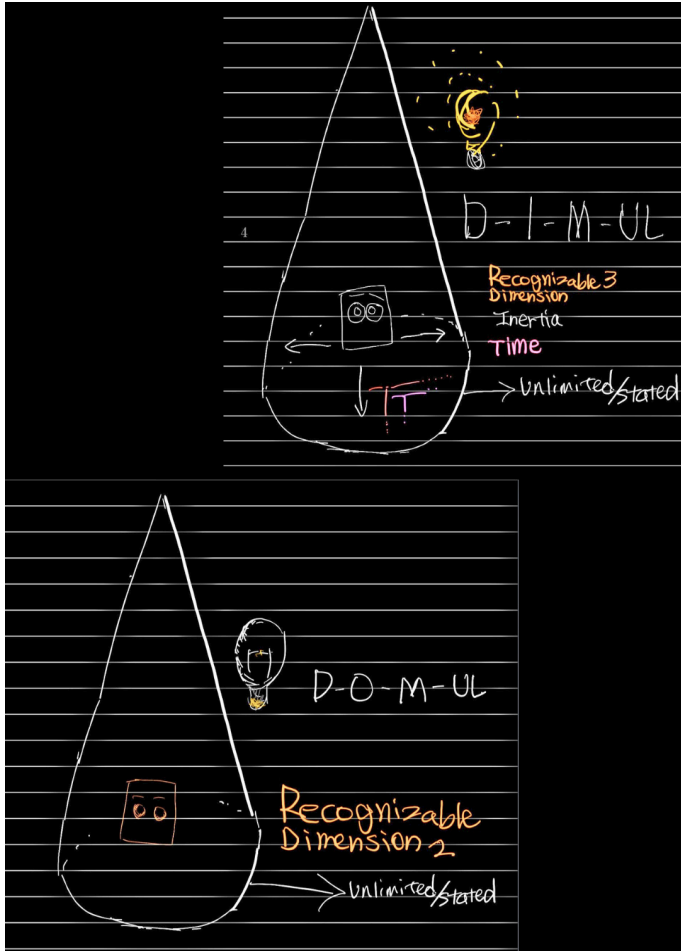 4
D-I-M-UL
Recognizable 3
Dimension
Inertia
Time
Unlimited/Stated
T T
D-O-M-UL
Recognizable
Dimension 2
Unlimited/Stated